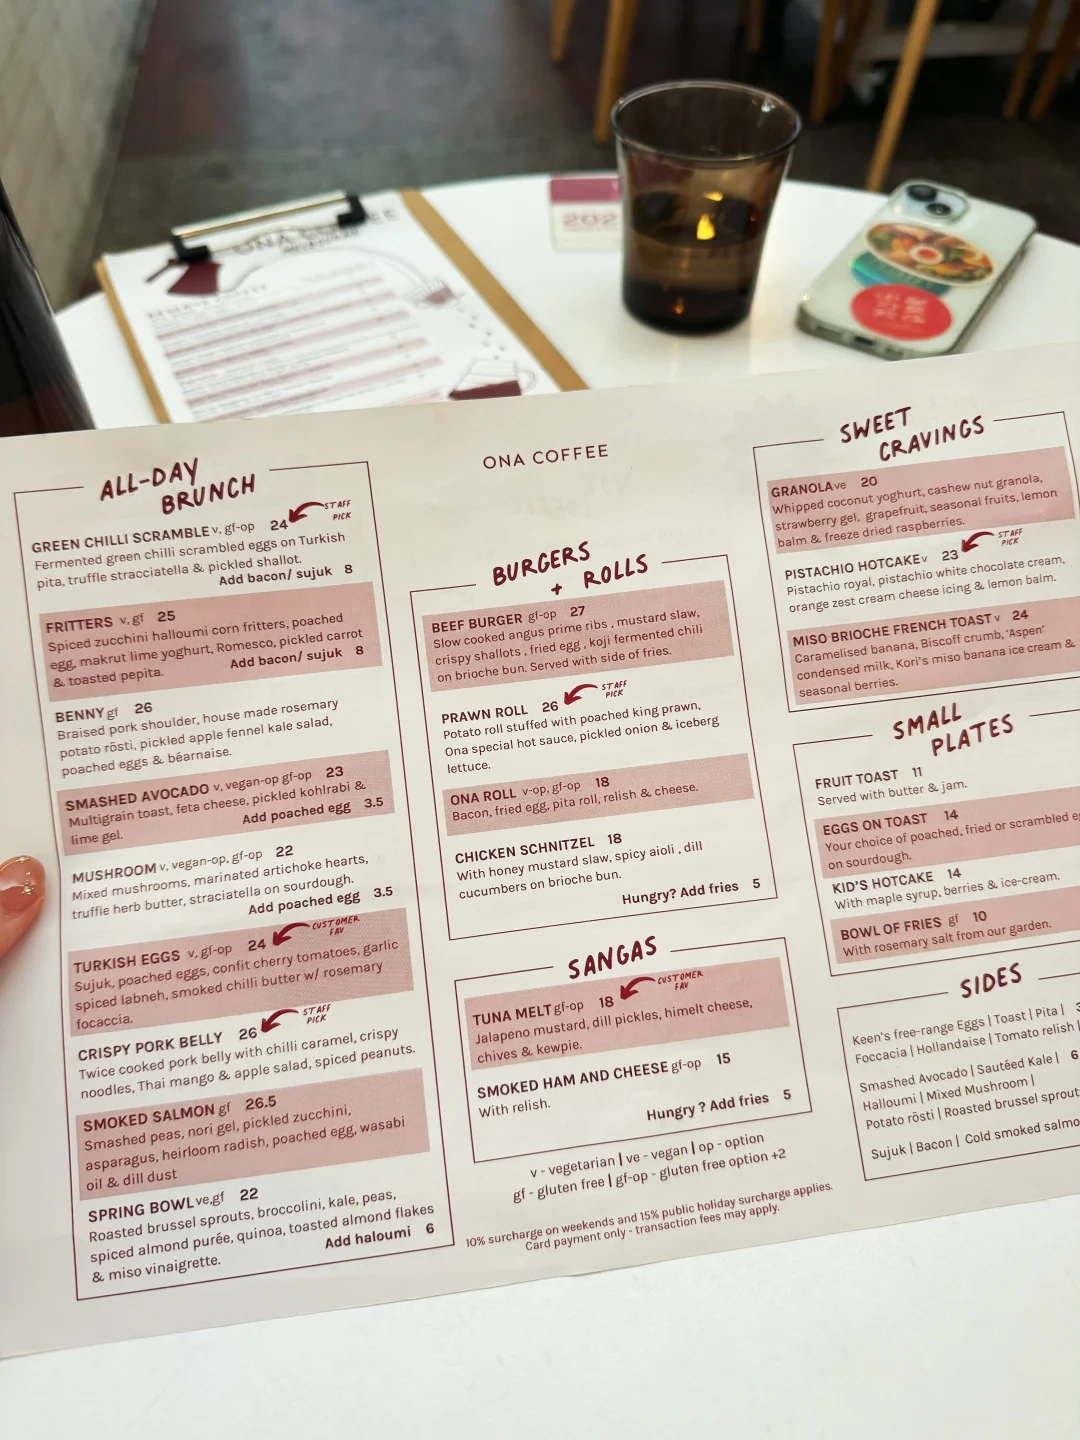 ONA COFFEE
202
ONA COFFEE
ALL-DAY
BRUNCH
GREEN CHILLI SCRAMBLE v, gf-op 24
STAFF
PICK
Fermented green chilli scrambled eggs on Turkish
pita, truffle stracciatella & pickled shallot.
Add bacon/ sujuk 8
FRITTERS v, gf 25
Spiced zucchini halloumi corn fritters, poached
egg, makrut lime yoghurt, Romesco, pickled carrot
& toasted pepita.
Add bacon/ sujuk 8
BENNY gf 26
Braised pork shoulder, house made rosemary
potato rösti, pickled apple fennel kale salad,
poached eggs & béarnaise.
SMASHED AVOCADO v, vegan-op gf-op 23
Multigrain toast, feta cheese, pickled kohlrabi &
lime gel.
Add poached egg 3.5
MUSHROOM v, vegan-op, gf-op 22
Mixed mushrooms, marinated artichoke hearts,
truffle herb butter, straciatella on sourdough.
Add poached egg 3.5
TURKISH EGGS v, gf-op 24
CUSTOMER
FAV
Sujuk, poached eggs, confit cherry tomatoes, garlic
spiced labneh, smoked chilli butter w/ rosemary
focaccia.
CRISPY PORK BELLY 26
STAFF
PICK
Twice cooked pork belly with chilli caramel, crispy
noodles, Thai mango & apple salad, spiced peanuts.
SMOKED SALMON gf 26.5
Smashed peas, nori gel, pickled zucchini,
asparagus, heirloom radish, poached egg, wasabi
oil & dill dust
SPRING BOWL ve,gf 22
Roasted brussel sprouts, broccolini, kale, peas,
spiced almond purée, quinoa, toasted almond flakes
& miso vinaigrette.
Add haloumi 6
BURGERS
+ ROLLS
BEEF BURGER gf-op 27
Slow cooked angus prime ribs , mustard slaw,
crispy shallots , fried egg , koji fermented chili
on brioche bun. Served with side of fries.
PRAWN ROLL 26
STAFF
PICK
Potato roll stuffed with poached king prawn,
Ona special hot sauce, pickled onion & iceberg
lettuce.
ONA ROLL v-op, gf-op 18
Bacon, fried egg, pita roll, relish & cheese.
CHICKEN SCHNITZEL 18
With honey mustard slaw, spicy aioli , dill
cucumbers on brioche bun.
Hungry? Add fries 5
SANGAS
TUNA MELT gf-op 18
CUSTOMER
FAV
Jalapeno mustard, dill pickles, himelt cheese,
chives & kewpie.
SMOKED HAM AND CHEESE gf-op 15
With relish.
Hungry ? Add fries 5
v - vegetarian | ve - vegan | op - option
gf - gluten free | gf-op - gluten free option +2
10% surcharge on weekends and 15% public holiday surcharge applies.
Card payment only - transaction fees may apply.
SWEET
CRAVINGS
GRANOLA ve 20
Whipped coconut yoghurt, cashew nut granola,
strawberry gel, grapefruit, seasonal fruits, lemon
balm & freeze dried raspberries.
PISTACHIO HOTCAKE v 23
STAFF
PICK
Pistachio royal, pistachio white chocolate cream,
orange zest cream cheese icing & lemon balm.
MISO BRIOCHE FRENCH TOAST v 24
Caramelised banana, Biscoff crumb, 'Aspen'
condensed milk, Kori's miso banana ice cream &
seasonal berries.
SMALL
PLATES
FRUIT TOAST 11
Served with butter & jam.
EGGS ON TOAST 14
Your choice of poached, fried or scrambled
on sourdough.
KID'S HOTCAKE 14
With maple syrup, berries & ice-cream.
BOWL OF FRIES gf 10
With rosemary salt from our garden.
SIDES
Keen's free-range Eggs | Toast | Pita |
Foccacia | Hollandaise | Tomato relish |
Smashed Avocado | Sautéed Kale | 6
Halloumi | Mixed Mushroom |
Potato rösti | Roasted brussel sprout
Sujuk | Bacon | Cold smoked